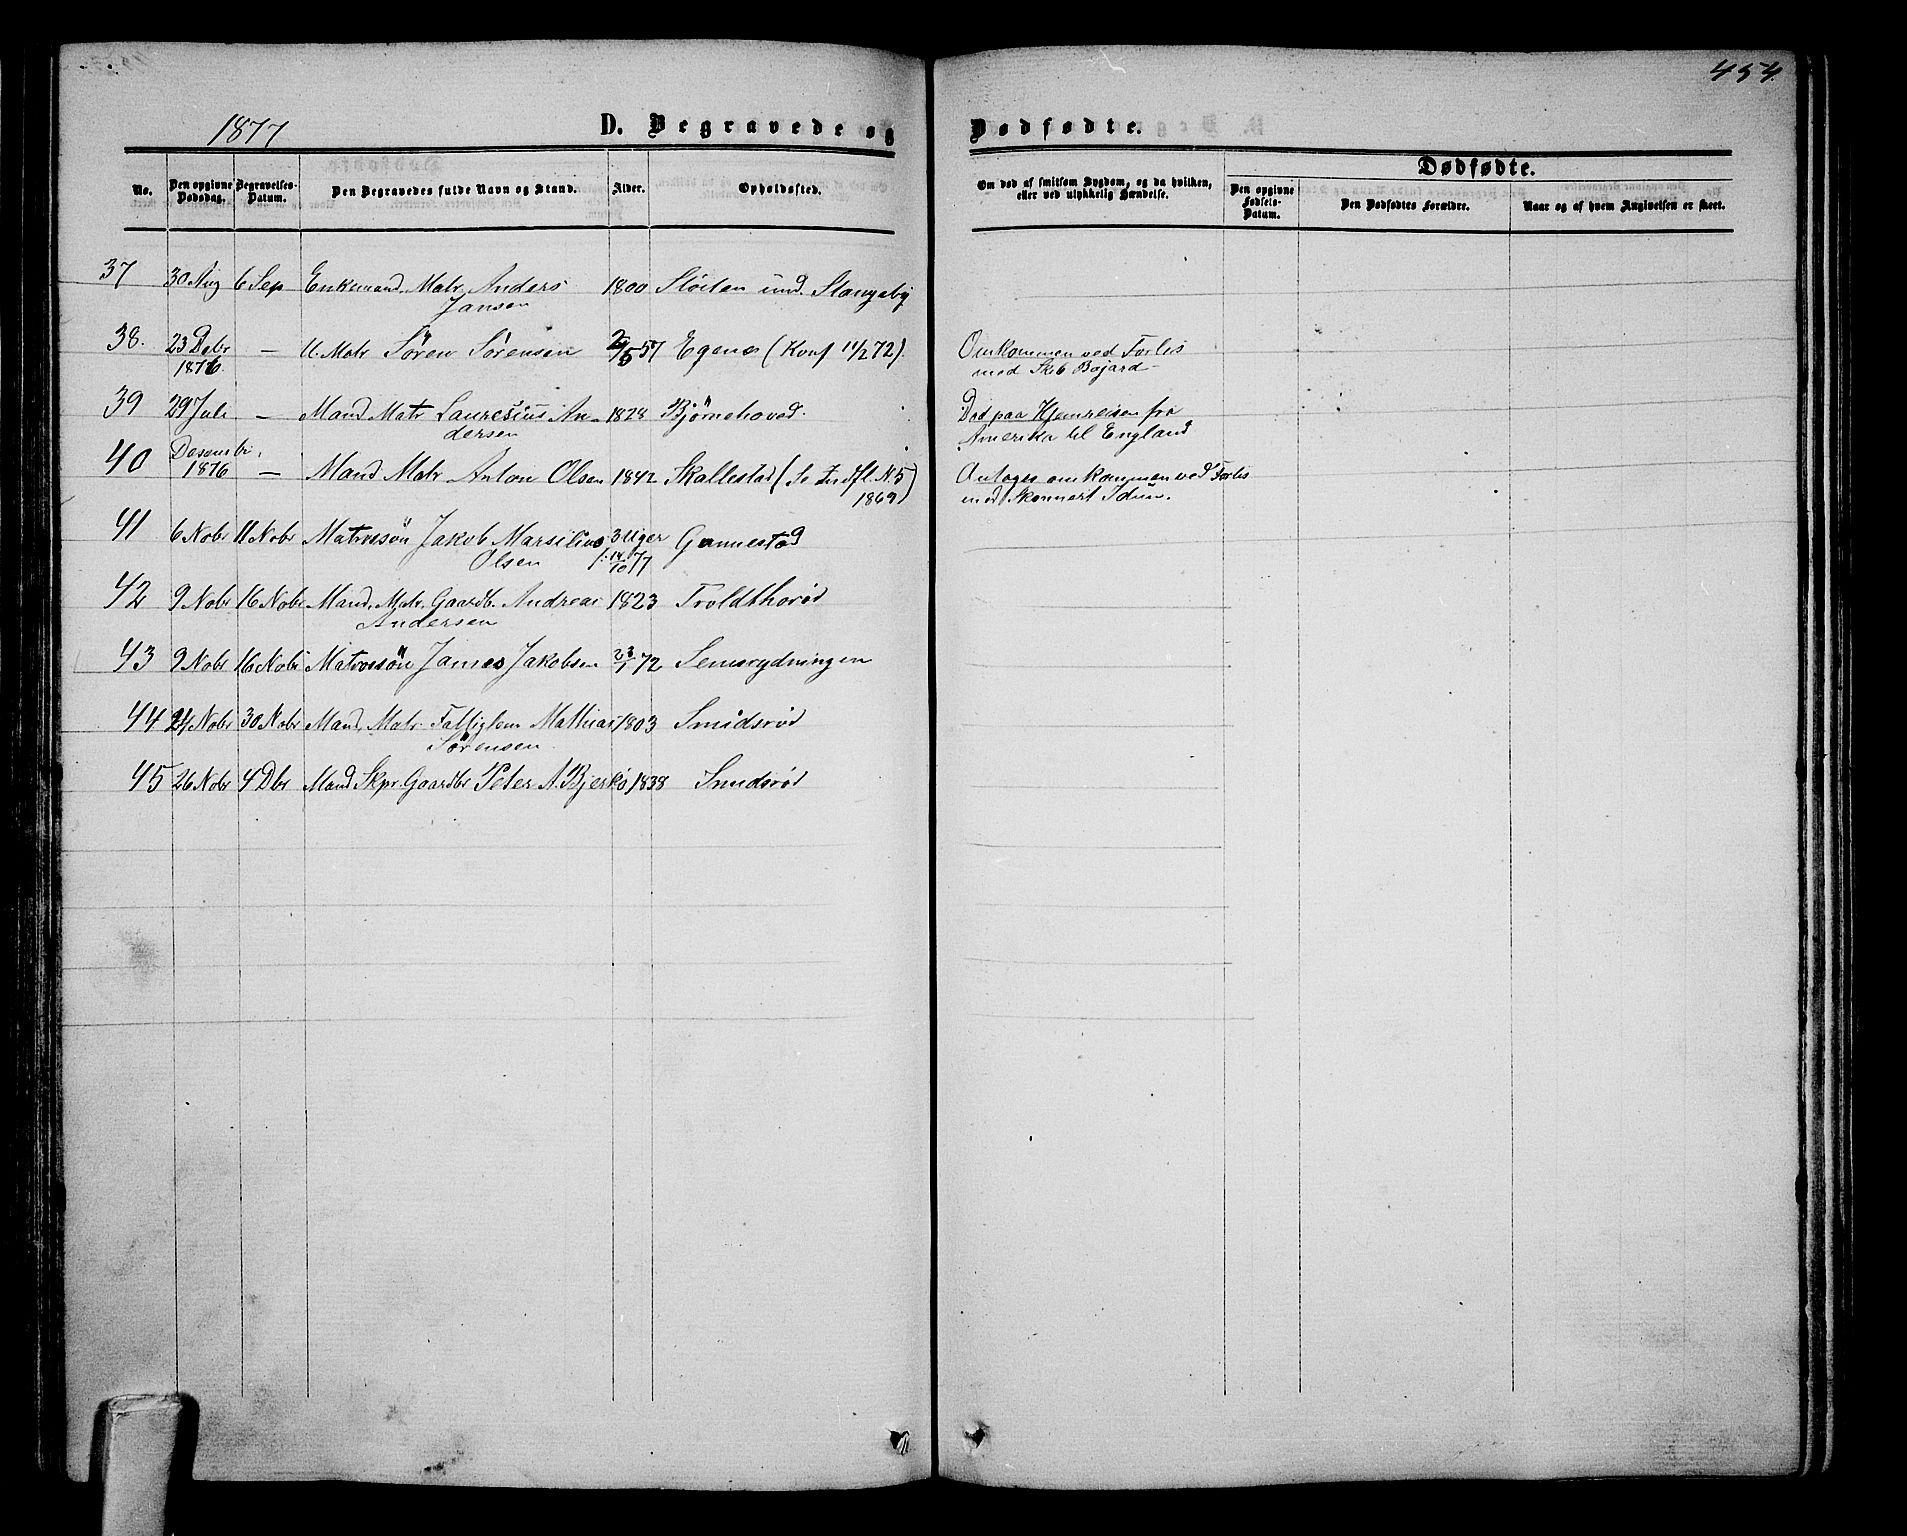 454.
1877
D. Begravede og Dødfødte.
Dødfødte.
No.
Den opgivne Dødsdag.
Begravelses-Datum.
Den Begravedes fulde Navn og Stand.
Alder.
Opholdssted.
Om død af smitsom Sygdom, og da hvilken, eller ved ulykkelig Hændelse.
Den opgivne Fødsels-Datum.
Den Dødfødtes Forældre.
Naar og af hvem Angivelsen er skeet.
37 30 Aug 6 Sep Enkemand. Matr. Anders 1800 und. Slangsby
Jansen
38. 23 Debr — U. Matr Sören Sörensen 2/5 57 Egenes (Konf 11/2 72). Omkommen ved Forlis
1876. med Skib Bojard —
39 29 Juli — Mand Matr Lauresius An- 1828 Bjørnehoved. Död paa Hjemreisen fra
dersen Amerika til England
40 Desembr. — Mand Matr Anton Olsen 1842 Skallestad (Se Indfl. N. 5 Antages omkommen ved Forlis
1876 1869) med Skonnert Idun.
41 6 Nobr 11 Nobr Matrossön Jakob Marsilius 3 Uger Gunnestad
Olsen f. 14/10 77
42 9 Nobr 16 Nobr Mand, Matr. Gaardb. Andreas 1823 Troldthorød
Andersen
43 9 Nobr 16 Nobr Matrossön James Jakobsen 23/1 72 Semsrydningen
44 24 Nobr 30 Nobr Mand, Matr. Fattiglem Mathias 1803 Smidsrød
Sørensen
45 26 Nobr 4 Dbr Mand Skpr. Gaardbr Peter A. Bjerkö 1838 Smidsrød